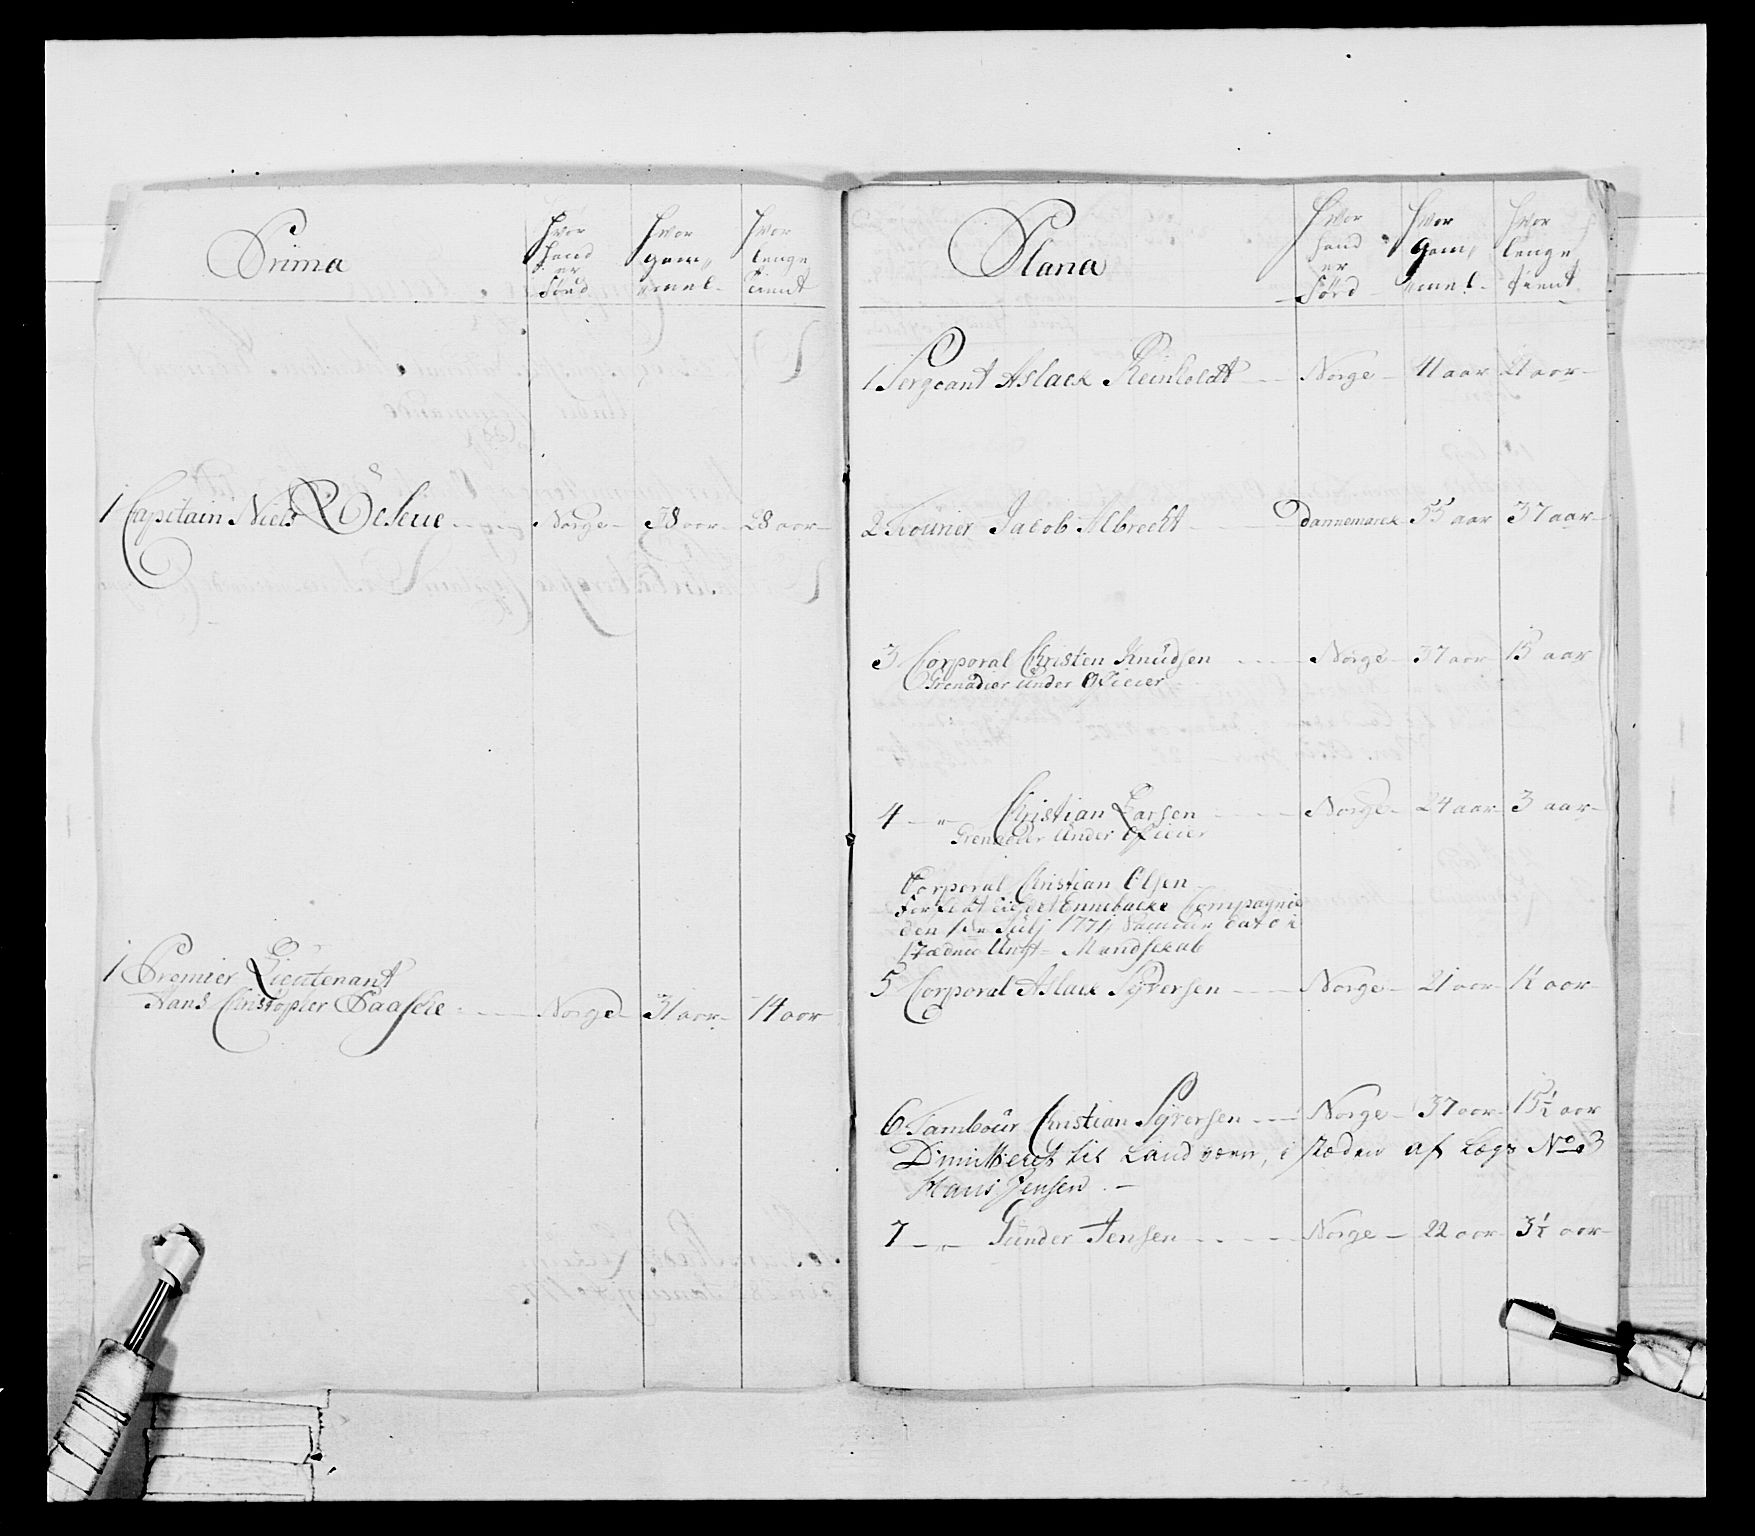 Prima
Hvor hand er Født
Hvor gam„ mel
Hvor lenge tient
1 Capitain Niels
Norge 38 aar 28 aar
1 Premier Lieutenant
Hans Christopher Paasche Norge 31 aar 14 aar
Plana
Hvor hand er Født
Hvor gam„ mel
Hvor lenge tient
1 Sergeant Aslack Reinholdt Norge 41 aar 21 aar
2 Fourier Jacob Albrecht Dannemarck 55 aar 37 aar
3 Corporal Christen Knudsen Norge 37 aar 15 aar
Grenadier Under Officier
4 - „ - Christian Larsen Norge 24 aar 3 aar
Grenadier Under Officier
Corporal Christian Olsen
Compagnie
den 1ste Julj 1771
Mandskab
5 Corporal Aslack Syversen Norge 21 aar aar
6 Tambour Christian Syversen Norge 37 aar 15½ aar
Dimitteret til Landværn, i stæden af Lægs No 3
Hans Jensen
7 - „ - Gunder Jensen Norge 22 aar 3½ aar